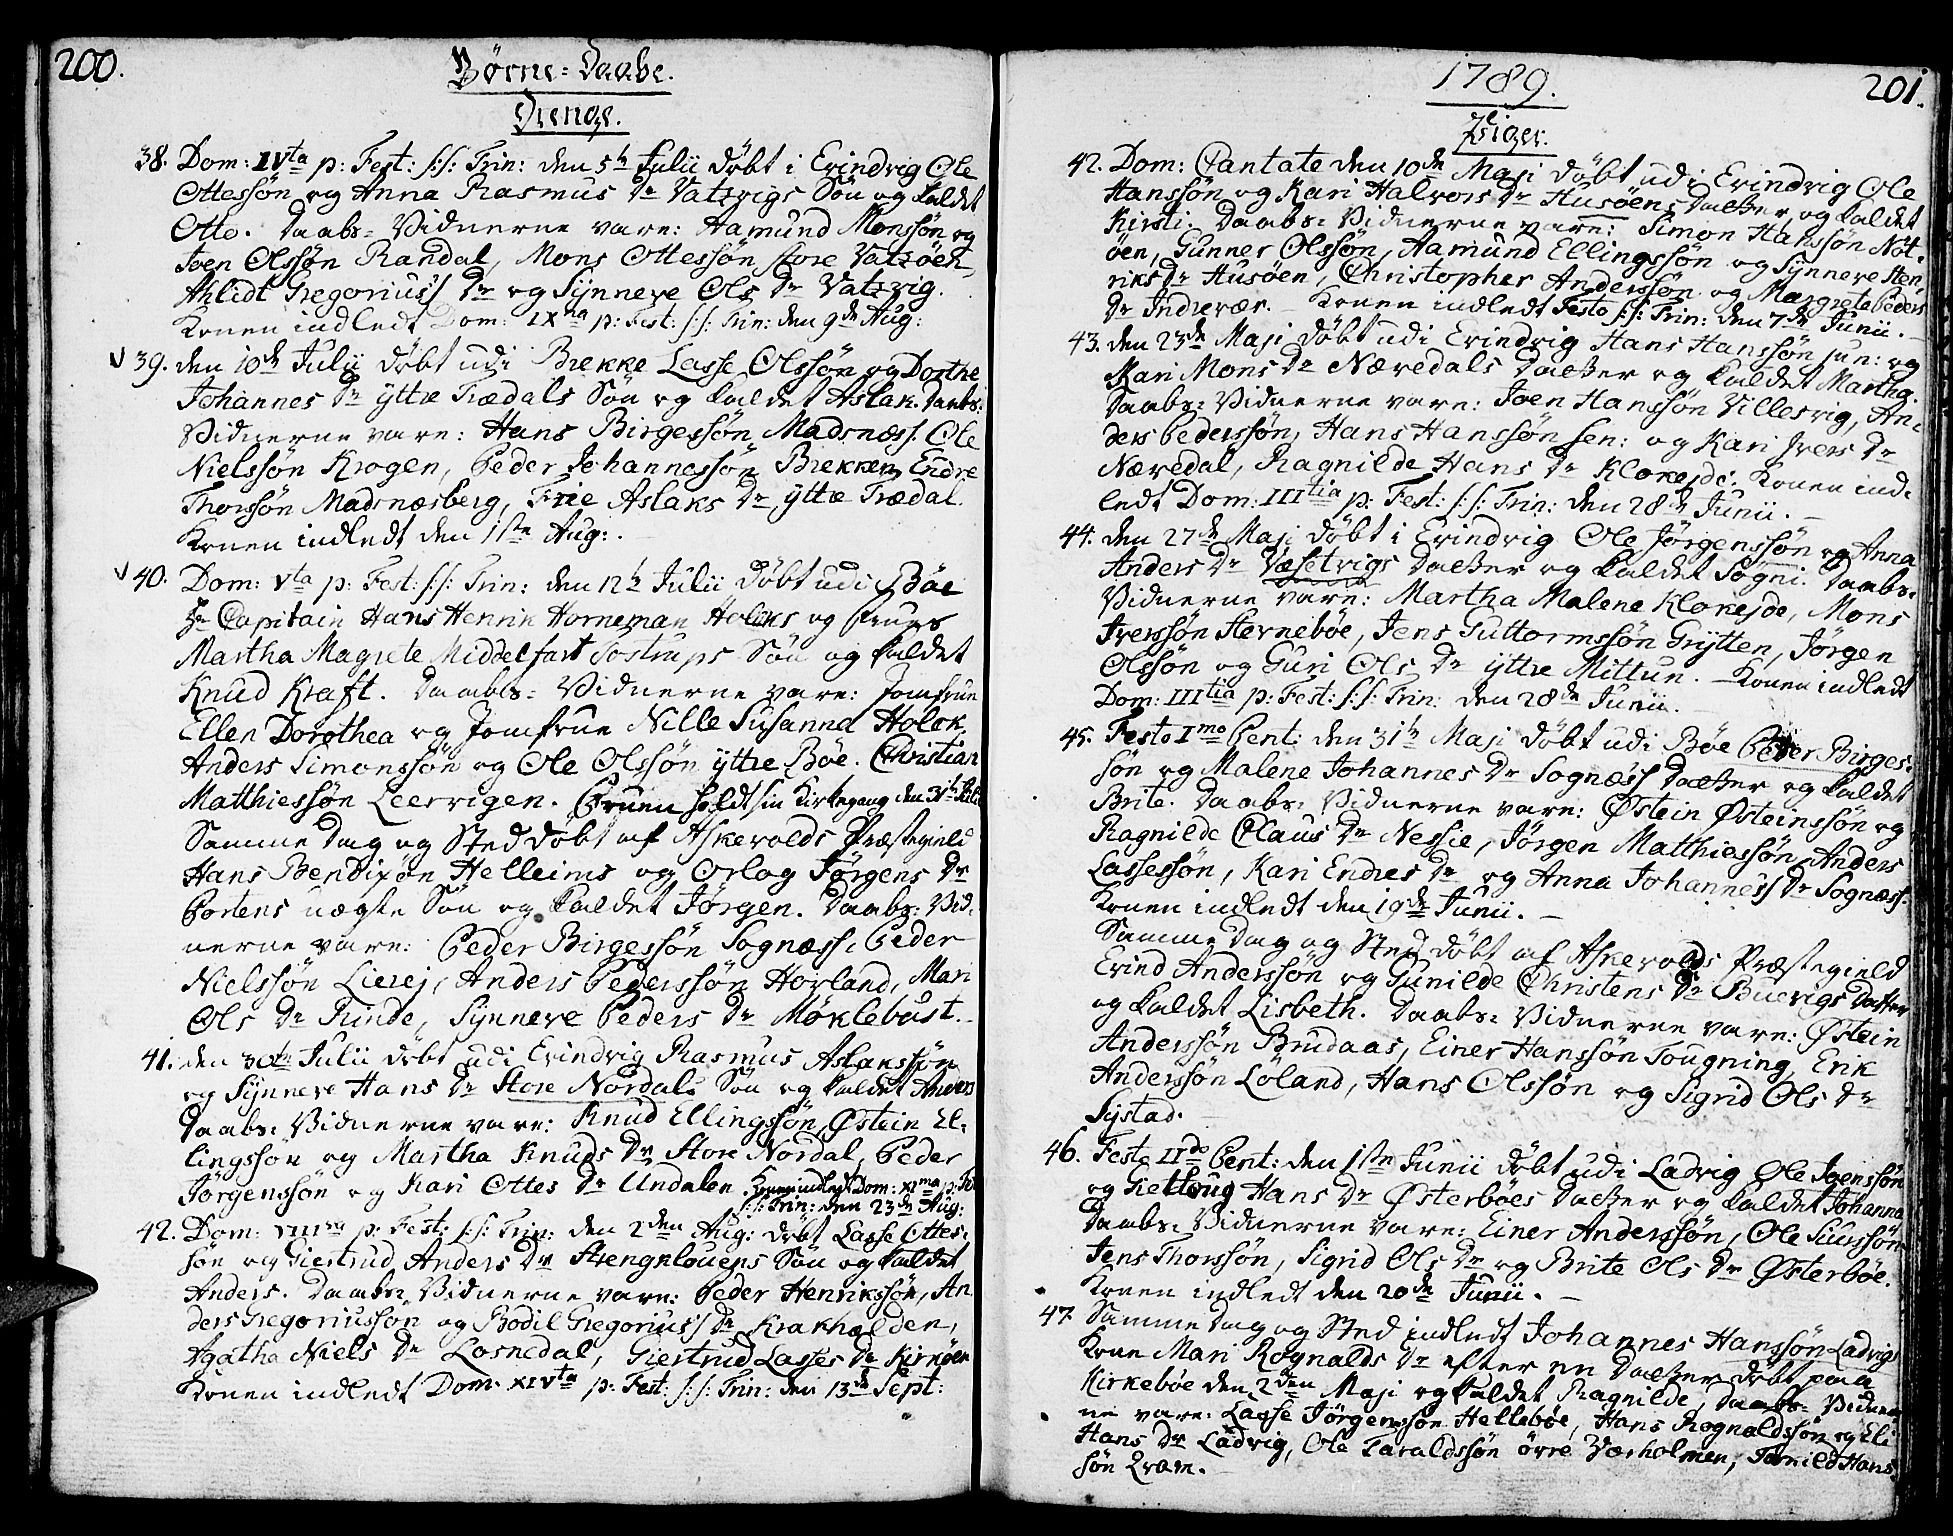 200.
Börne-Daabe.
Drenge.
38. Dom: IVta p: Fest: s:s: Trin: den 5te Julii döbt i Evindvig Ole
Ottessön og Anna Rasmus Dr Vatzvigs Sön og kaldet
Otto. Daabs-Vidnerne vare: Hamund Monssön og
Joen Olssön Randal, Mons Ottessön store Vatzöen,
Ahlidt Gregorius's Dr og Synneve Ols Dr Vatzvig.
Konen indledt Dom: IXna p: Fest: s:s: Trin: den 9de Aug:
39. den 10de Julii döbt udi Brekke Lasse Olssön og Dorthe
Johannes Dr yttre Trædals Sön og kaldet Aslak. Daabs-
Vidnerne vare: Hans Birgessön Madsnæss. Ole
Nielssön Krogen, Peder Johannessön Brekken, Endre
Thorssön Madsnæsberg, Trie Aslaks Dr yttre Trædal.
Konen indledt den 1ste Aug:.
40. Dom: Vta p: Fest: s:s: Trin: den 12te Julii döbt udi Böe
Hr Capitain Hans Henrik Horneman Holcks og Frues
Martha Magrete Middelfart Tostrups Sön og kaldet
Knud Kraft. Daabs-Vidnerne vare: Jomfrue
Ellen Dorothea og Jomfrue Nille Susanna Holck,
Anders Simonssön og Ole Olssön yttre Böe. Christian
Matthiessön Leervigen. Fruen holdt sin Kirkegang den 31te Julii
Samme Dag og Sted döbt af Askevolds Præstegield
Hans Bendixön Helleims og Orlog Jörgens Dr
Portens uægte Sön og kaldet Jörgen. Daabs-Vid-
nerne vare: Peder Birgessön Sognæss. Peder
Nielssön Lierej, Anders Pederssön Hovland, Mari
Ols Dr Rinde, Synneve Peders Dr Möklebust.
41. den 30te Julii döbt udi Evindvig Rasmus Aslakssön
og Synneve Hans Dr Store Nordals Sön og kaldet Anders
Daabs-Vidnerne vare: Knud Ellingssön, Østein El-
lingssön og Martha Knuds Dr Store Nordal, Peder
Jörgenssön og Kari Ottes Dr Undalen. Konen indledt Dom: XIma p: Fest:
s:s: Trin: den 23de Aug:
42. Dom: VIIIva p: Fest: s:s: Trin: den 2den Aug: döbt Lasse Ottes-
sön og Giertrud Anders Dr Strengklouens Sön og kaldet
Anders. Daabs-Vidnerne vare: Peder Henrikssön, An
ders Gregoriussön og Bodil Gregorius's Dr Krakhalden,
Agatha Niels Dr Losnedal, Giertrud Lasses Dr Kirköen
Konen indledt Dom: XIVta p: Fest: s:s: Trin: den 13de Sept:
1789.
201.
Piger.
42. Dom: Cantate den 10de Maji döbt udi Evindvig Ole
Hanssön og Kari Halvors Dr Husöens Datter og kaldet
Kirsti. Daabs-Vidnerne vare: Simon Hanssön Nöt-
öen, Gunner Olssön, Hamund Ellingssön og Synneve Hen-
riks Dr Husöen, Christopher Anderssön og Margrete Peders
Dr Indrevær. Konen indledt Festo s:s: Trin: den 7de Junii.
43. den 23de Maji döbt udi Evindvig Hans Hanssön jun: og
Kari Mons Dr Nævedals Datter og kaldet Martha.
Daabs-Vidnerne vare: Joen Hanssön Villesvig, An-
ders Pederssön, Hans Hanssön sen: og Kari Ivers Dr
Nævedal, Ragnilde Hans Dr Klokejde. Konen ind-
ledt Dom: IIItia p: Fest: s:s: Trin: den 28de Junii.
44. den 27de Maji döbt i Evindvig Ole Jörgenssön og Anna
Anders Dr Væsetvigs Datter og kaldet Sögni. Daabs-
Vidnerne vare: Martha Malene Klokejde, Mons
Iverssön Hernebøe, Jens Guttormssön Grytten, Jörgen
Olssön og Guri Ols Dr yttre Mittun. Konen indledt
Dom: IIItia p: Fest: s:s: Trin: den 28de Junii.
45. Festo Imo Pent: den 31te Maji döbt udi Böe Peder Birges-
sön og Malene Johannes Dr Sognæss Datter og kaldet
Brite. Daabs-Vidnerne vare: Østein Østeinssön og
Ragnilde Claus Dr Nessie, Jörgen Matthiessön, Anders
Lassessön, Kari Endres Dr og Anna Johannes's Dr Sognæss.
Konen indledt den 19de Junii.
Samme Dag og Sted döbt af Askevolds Præstegield
Evind Anderssön og Gunilde Christens Dr Buevigs Datter
og kaldet Lisbeth. Daabs-Vidnerne vare: Østein
Anderssön Brudaas, Einer Hanssön Tougning, Erik
Anderssön Löland, Hans Olssön og Sigrid Ols Dr
Systad.
46. Festo IIdo Pent: den 1ste Junii döbt udi Ladvig Ole Joenssön
og Gieltrug Hans Dr Österböes Datter og kaldet Johanna
Daabs-Vidnerne vare: Einer Anderssön, Ole Siurssön
Jens Thorssön, Sigrid Ols Dr og Brite Ols Dr Österböe.
Konen indledt den 20de Junii.
47. Samme Dag og Sted indledt Johannes Hanssön Ladvigs
Kone Mari Rognalds Dr efter en Datter döbt paa
Kirkeböe den 2den Maji og kaldet Ragnilde, Daabs-Vidner-
ne vare: Lasse Jörgenssön Hellebøe, Hans Rognaldssön og Eli
Hans Dr Ladvig, Ole Taraldssön övre Værholmen, Tornild Hans
sön Qvam.